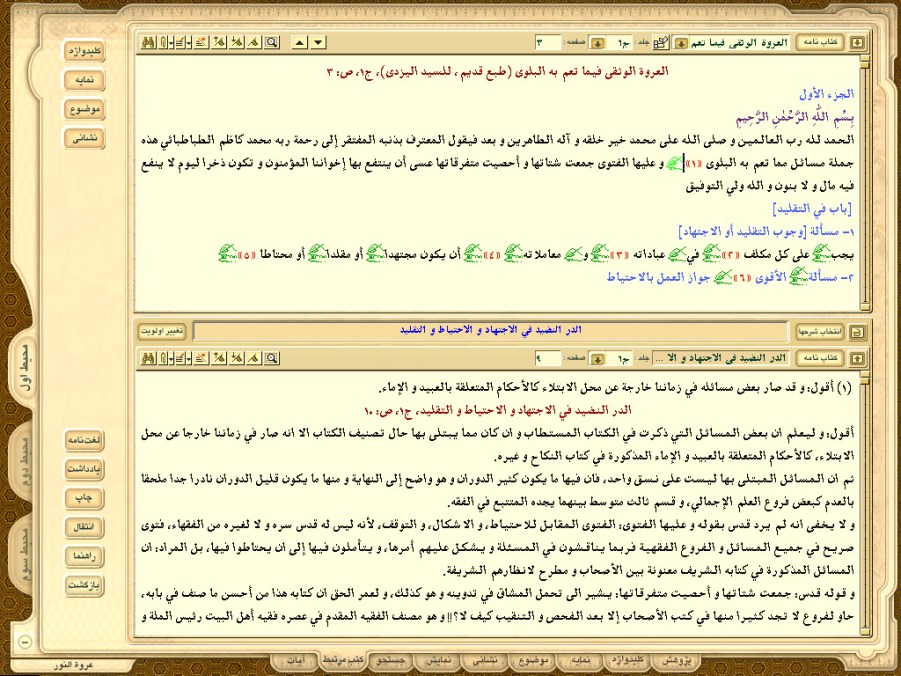 کتاب نامه
العروة الوثقى فيما تعم
جلد
ج۱
صفحه :
۳
کلیدواژه
نمایه
موضوع
نشانی
العروة الوثقى فيما تعم به البلوى (طبع قديم ، للسيد اليزدي)، ج۱، ص: ۳
الجزء الأول
بِسْمِ اللَّهِ الرَّحْمٰنِ الرَّحِيمِ
الحمد لله رب العالمين و صلى الله على محمد خير خلقه و آله الطاهرين و بعد فيقول المعترف بذنبه المفتقر إلى رحمة ربه محمد كاظم الطباطبائي هذه
جملة مسائل مما تعم به البلوى «۱» و عليها الفتوى جمعت شتاتها و أحصيت متفرقاتها عسى أن ينتفع بها إخواننا المؤمنون و تكون ذخرا ليوم لا ينفع
فيه مال و لا بنون و الله ولي التوفيق
[باب في التقليد]
۱- مسألة [وجوب التقليد أو الاجتهاد]
يجب على كل مكلف «۲» في عباداته «۳» و معاملاته «۴» أن يكون مجتهدا أو مقلدا أو محتاطا «۵»
۲- مسألة الأقوى «۶» جواز العمل بالاحتياط
محیط اول
محیط دوم
محیط سوم
انتخاب شرحها
الدر النضيد في الاجتهاد و الاحتياط و التقليد
تغییر اولویت
کتاب نامه
الدر النضيد في الاجتهاد و الا ...
جلد
ج۱
صفحه :
۹
(۱) أقول: و قد صار بعض مسائله في زماننا خارجة عن محل الابتلاء كالأحكام المتعلقة بالعبيد و الإماء.
الدر النضيد في الاجتهاد و الاحتياط و التقليد، ج۱، ص: ۱۰
أقول: و ليعلم ان بعض المسائل التي ذكرت في الكتاب المستطاب و ان كان مما يبتلى بها حال تصنيف الكتاب الا انه صار في زماننا خارجا عن محل
الابتلاء، كالأحكام المتعلقة بالعبيد و الإماء المذكورة في كتاب النكاح و غيره.
ثم ان المسائل المبتلى بها ليست على نسق واحد، فان فيها ما يكون كثير الدوران و هو واضح إلى النهاية و منها ما يكون قليل الدوران نادرا جدا ملحقا
بالعدم كبعض فروع العلم الإجمالي، و قسم ثالث متوسط بينهما يجده المتتبع في الفقه.
و لا يخفى انه لم يرد قدس بقوله و عليها الفتوى: الفتوى المقابل للاحتياط، و الاشكال، و التوقف، لأنه ليس له قدس سره و لا لغيره من الفقهاء، فتوى
صريح في جميع المسائل و الفروع الفقهية فربما يناقشون في المسئلة و يشكل عليهم أمرها، و يتأملون فيها إلى ان يحتاطوا فيها، بل المراد: ان
المسائل المذكورة في كتابه الشريف معنونة بين الأصحاب و مطرح لانظارهم الشريفة.
و قوله قدس: جمعت شتاتها و أحصيت متفرقاتها: يشير الى تحمل المشاق في تدوينه و هو كذلك، و لعمر الحق ان كتابه هذا من أحسن ما صنف في بابه،
حاو لفروع لا تجد كثيرا منها في كتب الأصحاب إلا بعد الفحص و التنقيب كيف لا؟|| و هو مصنف الفقيه المقدم في عصره فقيه أهل البيت رئيس الملة و
لغت‌نامه
یادداشت
چاپ
انتقال
راهنما
بازگشت
پژوهش
کلیدواژه
نمایه
موضوع
نشانی
نمایش
جستجو
کتب مرتبط
آیات
عروة النور